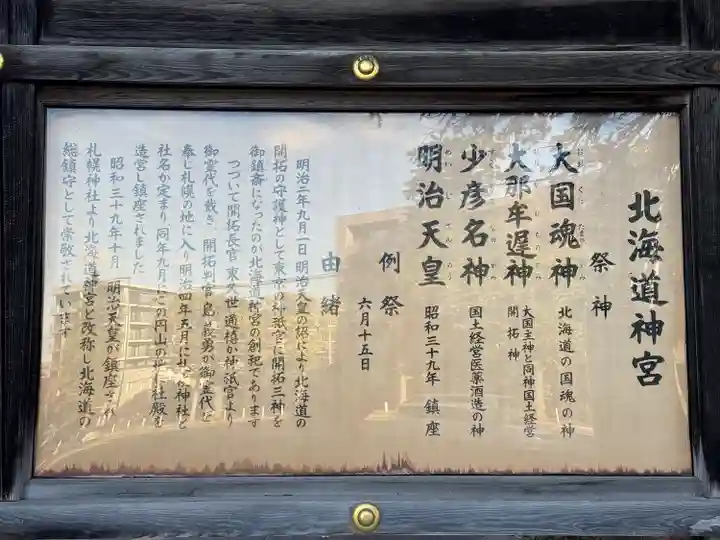 北海道神宮
祭神
大国魂神 北海道の国魂の神
大那牟遅神 大国主神と同神国土経営開拓神
少彦名神 国土経営医薬酒造の神
明治天皇 昭和三十九年 鎮座
例祭 六月十五日
由緒
明治二年九月一日明治天皇の詔により北海道の
開拓の守護神として東京の神祇官に開拓三神を
御鎮斎になったのが北海道神宮の創祀であります
つづいて開拓長官東久世通禧が神祇官より
御霊代を戴き、開拓判官島義勇が御霊代を
奉じ札幌の地に入り明治四年五月に札幌神社と
社名が定まり、同年九月にこの円山の地に社殿を
造営し鎮座されました
昭和三十九年十月 明治天皇が鎮座され
札幌神社より北海道神宮と改称し北海道の
総鎮守として崇敬されています